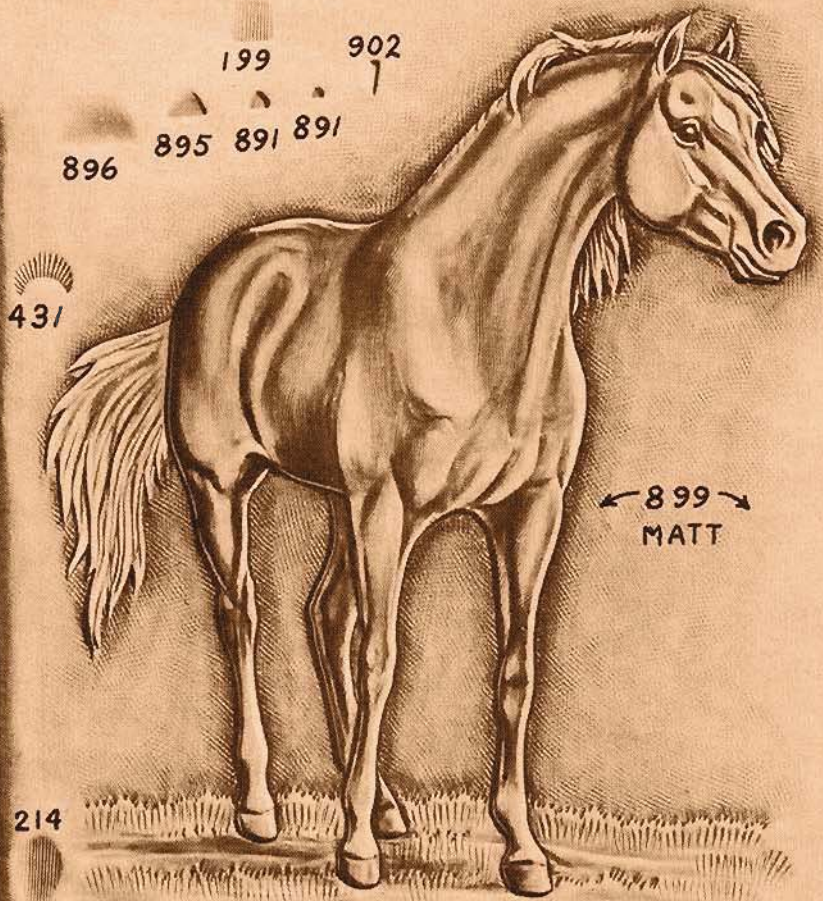 199
902
896
895
891
891
431
899
MATT
214